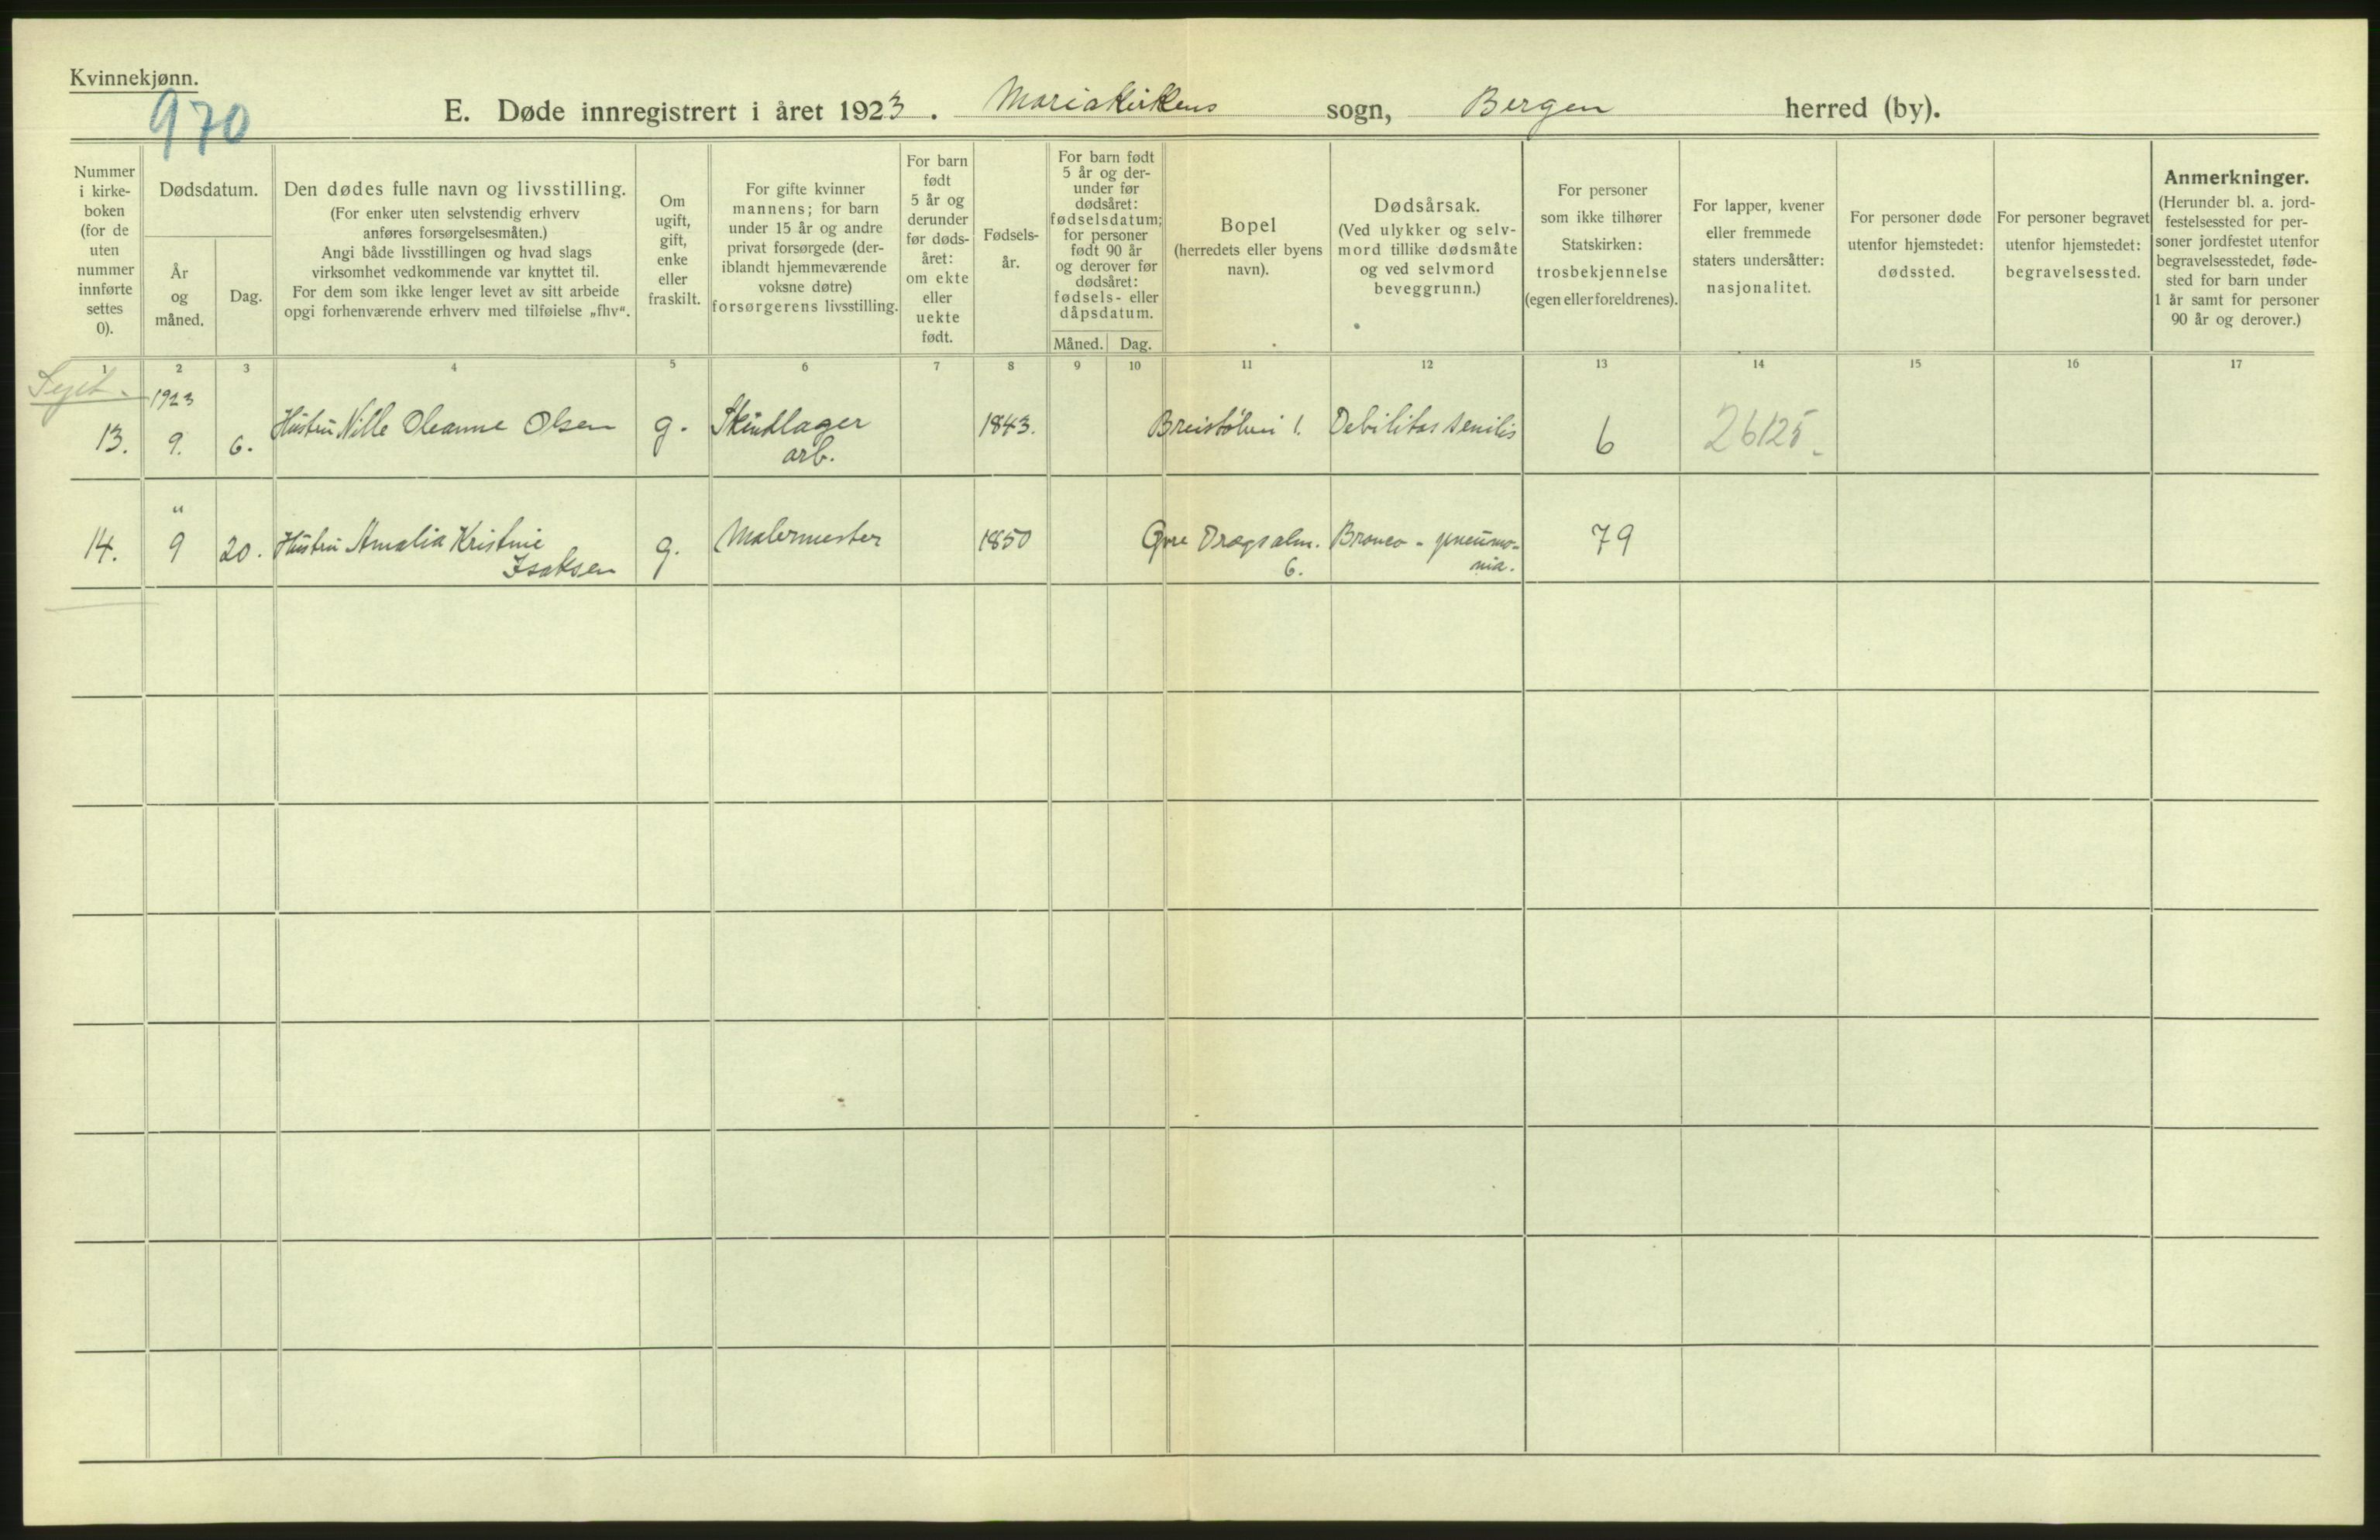 Kvinnekjønn.
970
E. Døde innregistrert i året 1923. Mariakirkens sogn, Bergen herred (by).
Nummer
i kirke-
boken
(for de
uten
nummer
innførte
settes
0).
Dødsdatum.
År
og
måned.
Dag.
Den dødes fulle navn og livsstilling.
(For enker uten selvstendig erhverv
anføres forsørgelsesmåten.)
Angi både livsstillingen og hvad slags
virksomhet vedkommende var knyttet til.
For dem som ikke lenger levet av sitt arbeide
opgi forhenværende erhverv med tilføielse „fhv“.
Om
ugift,
gift,
enke
eller
fraskilt.
For gifte kvinner
mannens; for barn
under 15 år og andre
privat forsørgede (der-
iblandt hjemmeværende
voksne døtre)
forsørgerens livsstilling.
For barn
født
5 år og
derunder
før døds-
året:
om ekte
eller
uekte
født.
Fødsels-
år.
For barn født
5 år og der-
under før
dødsåret:
fødselsdatum;
for personer
født 90 år
og derover før
dødsåret:
fødsels- eller
dåpsdatum.
Måned. Dag.
Bopel
(herredets eller byens
navn).
Dødsårsak.
(Ved ulykker og selv-
mord tillike dødsmåte
og ved selvmord
beveggrunn.)
For personer
som ikke tilhører
Statskirken:
trosbekjennelse
(egen eller foreldrenes).
For lapper, kvener
eller fremmede
staters undersåtter:
nasjonalitet.
For personer døde
utenfor hjemstedet:
dødssted.
For personer begravet
utenfor hjemstedet:
begravelsessted.
Anmerkninger.
(Herunder bl. a. jord-
festelsessted for per-
soner jordfestet utenfor
begravelsesstedet, føde-
sted for barn under
1 år samt for personer
90 år og derover.)
1 2 3 4 5 6 7 8 9 10 11 12 13 14 15 16 17
Sept.
1923
13. 9. 6. Hustru Nille Oleanne Olsen g. Skindlager 1843. 1. Debilitas senilis 6 26125
arb.
"
14. 9 20. Hustru Amalia Kristine g. Malermester 1850 Øvre Dregsalm. Bronco - pneumo-
Isaksen 6. nia. 79